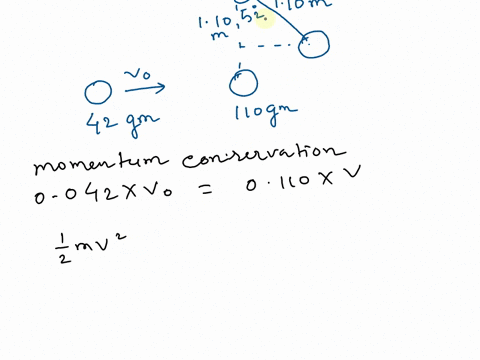 1.10 m
1.10, 52°
m
v₀
42 gm
110gm
momentum conservation
0.042 × v₀ = 0.110 × V
1/2 mv²